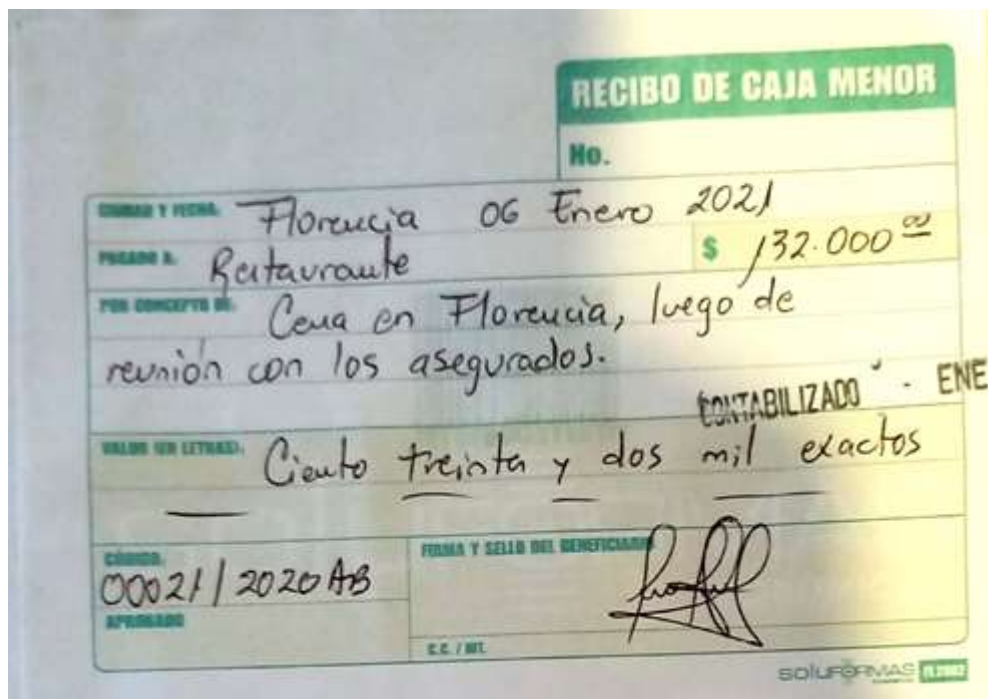 RECIBO DE CAJA MENOR
No.
CIUDAD Y FECHA: Florencia 06 Enero 2021
PAGADO A: Restaurante $ 132.000 00
POR CONCEPTO DE: Cena en Florencia, luego de
reunión con los asegurados.
CONTABILIZADO - ENE
VALOR (EN LETRAS): Ciento treinta y dos mil exactos
CÓDIGO: FIRMA Y SELLO DEL BENEFICIARIO
00021/2020 AB
APROBADO
C.C. / NIT.
SOLUFORMAS